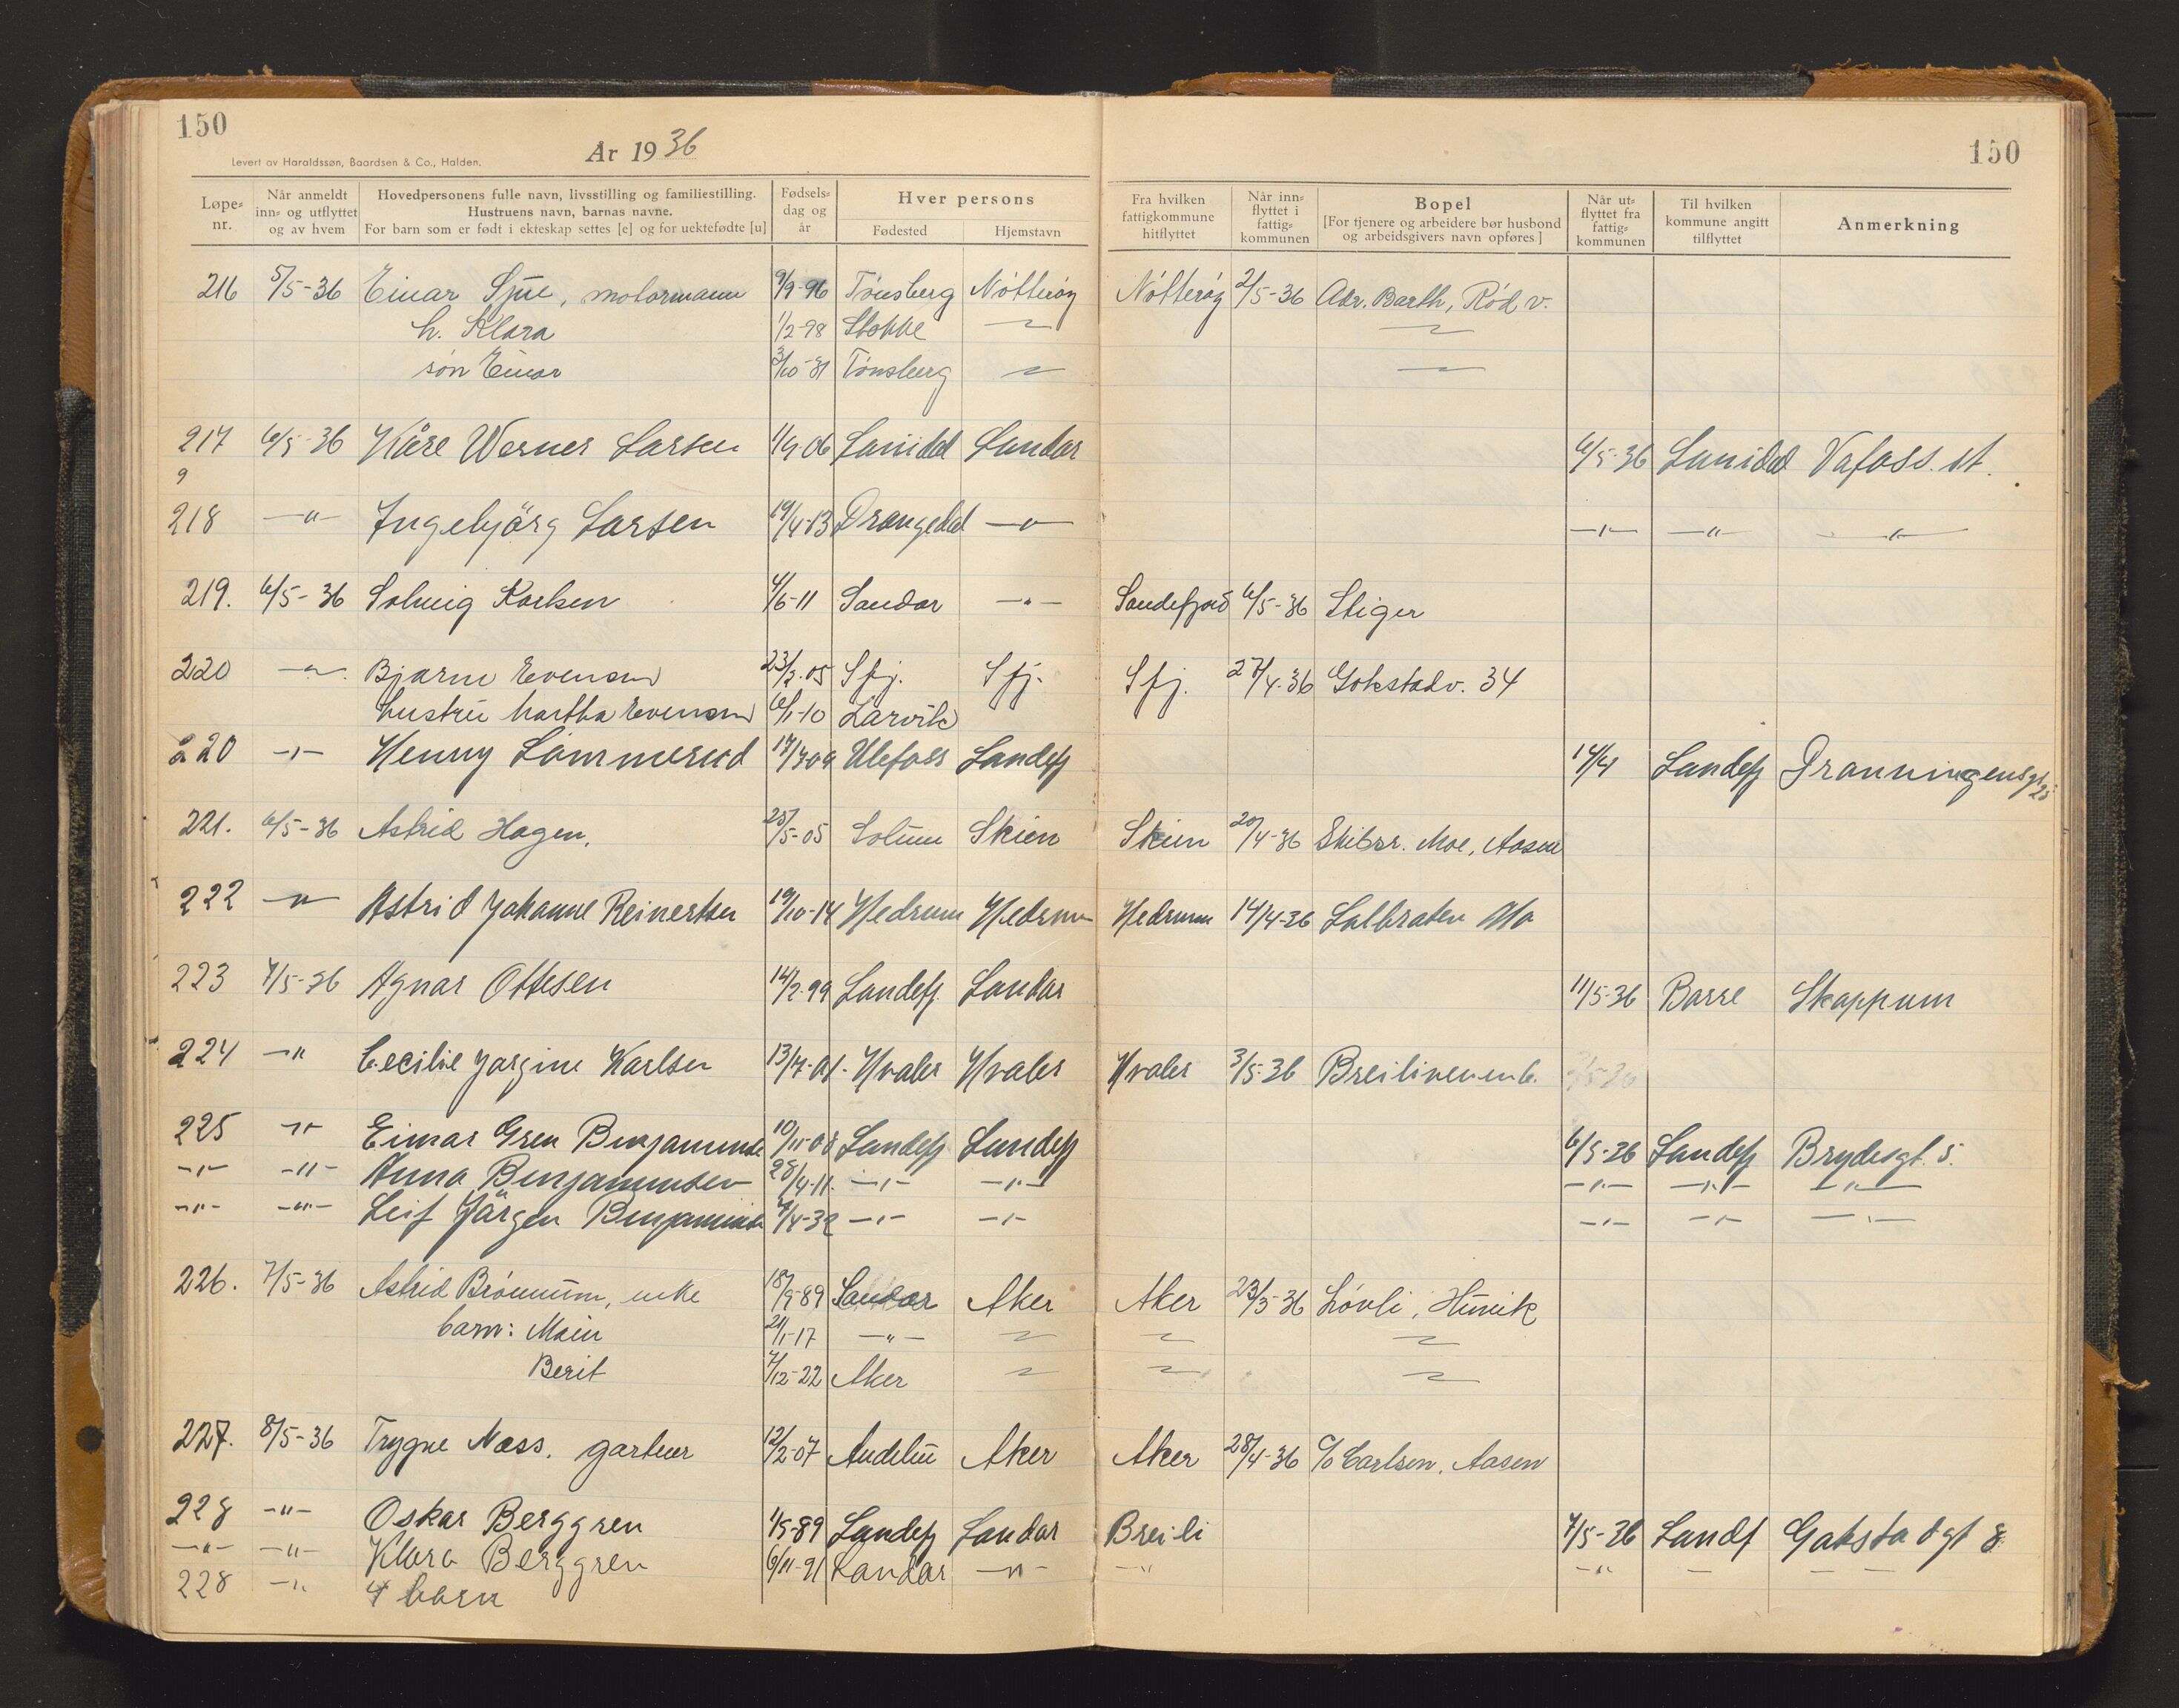 150
År 1936
150
Levert av Haraldssøn, Baardsen & Co., Halden.
Løpe-nr. Når anmeldt inn- og utflyttet og av hvem Hovedpersonens fulle navn, livsstilling og familiestilling. Hustruens navn, barnas navne. For barn som er født i ekteskap settes [e] og for uektefødte [u] Fødsels-dag og år Hver persons Fødested Hjemstavn Fra hvilken fattigkommune hitflyttet Når inn-flyttet i fattig-kommunen Bopel [For tjenere og arbeidere bør husbond og arbeidsgivers navn opføres.] Når ut-flyttet fra fattig-kommunen Til hvilken kommune angitt tilflyttet Anmerkning
216 5/5-36 Einar Sjue, motormann 9/9-96 Tönsberg Nötteröy Nötteröy 2/5-36 Adr. Barth, Röd v.
h. Klara 1/2-98 Stokke
sön Einar 3/10-31 Tönsberg
217 6/5-36 Kåre Werner Larsen 1/9-06 Sanidal Sandar 6/5-36 Sanidal Vafoss. st.
9
218 -"- Ingebjörg Larsen 19/4-13 Drangedal -"- -"- -"- -"-
219. 6/5-36 Solveig Karlsen 4/6-11 Sandar -"- Sandefjord 6/5-36 Stiger
220 -"- Bjarne Evensen 23/2-05 Sfj. Sfj. Sfj. 27/4-36 Gokstadv. 34
hustru Martha Evensen 6/1-10 Larvik
220 -"- Henny Lömmerud 17/7-09 Ulefoss Sandefj 14/4 Sandefj Dronningensgt 25
221. 6/5-36 Astrid Hagen. 25/5-05 Solum Skien Skien 20/4-36 Skibsr. Moe, Aasen
222 -"- Astrid Johanne Reinertsen 19/10-14 Hedrum Hedrum Hedrum 14/4-36 Mo
223 7/5-36 Agnar Ottesen 14/2-99 Sandefj. Sandar 11/5-36 Borre Skoppum
224 -"- Cecilie Jorgine Karlsen 13/7-01 Hvaler Hvaler Hvaler 3/5-36
225 -"- Einar Gren Benjaminsen 10/11-08 Sandefj Sandefj 6/5-36 Sandefj Brydesgt. 5.
-"- -"- Anna Benjaminsen 28/4-11. -"- -"- -"- -"- -"-
-"- -"- Leif Jörgen Benjaminsen 7/4-32 -"- -"- -"- -"- -"-
226. 7/5-36 Astrid Brönnum, enke 18/9-89 Sandar Aker Aker 23/3-36 Lövli, Hunik
barn: Main 21/1-17 -"-
Berit 7/12-22 Aker
227. 8/5-36 Trygve Næss. gartner 12/2-07 Aker Aker 28/4-36 c/o Carlsen, Aasen
228 -"- Oskar Berggren 1/5-89 Sandefj Sandar Breili 7/5-36 Sandf Gokstadgt 8
-"- -"- Klara Berggren 6/11-91 Sandar -"- -"- -"-
228 -"- 4 barn